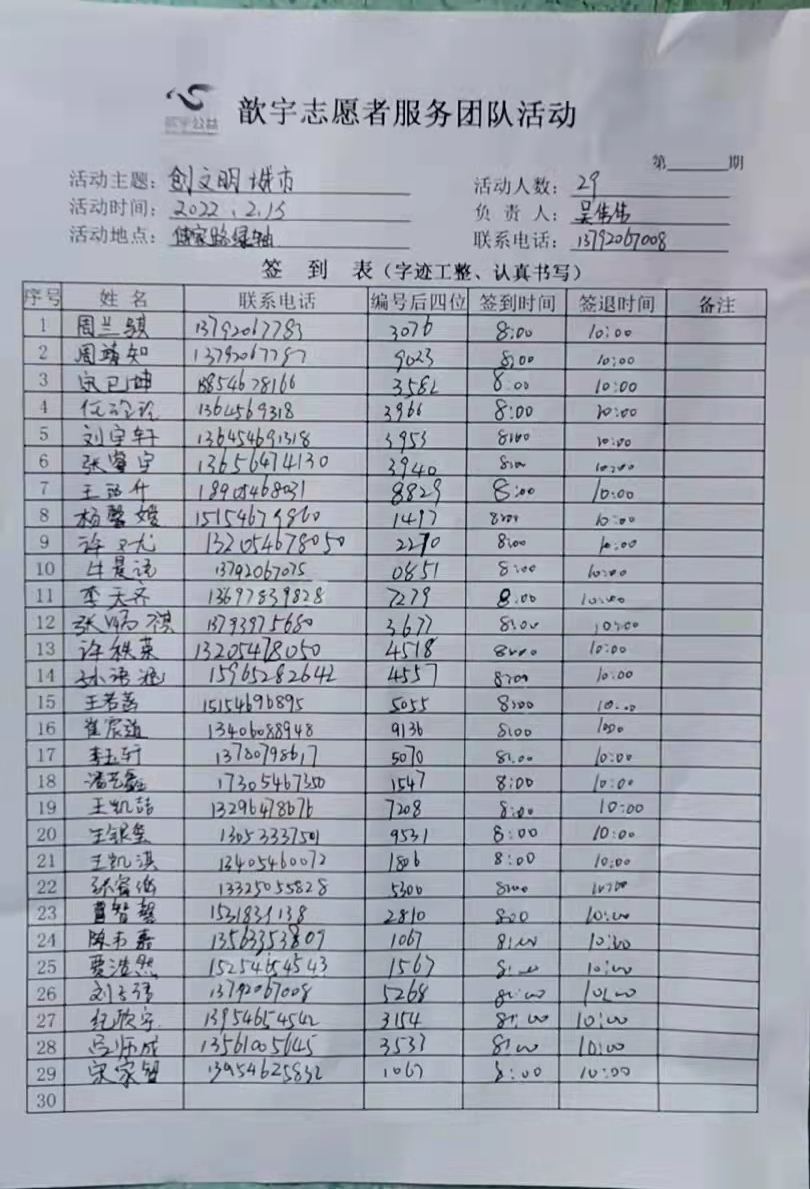 歆宇公益
歆宇志愿者服务团队活动
第______期
活动主题：创文明城市 活动人数：29
活动时间：2022.2.13 负责人：吴伟伟
活动地点：傅家路绿轴 联系电话：13792067008
签到表（字迹工整、认真书写）
序号 姓名 联系电话 编号后四位 签到时间 签退时间 备注
1 周兰骐 13792067783 3076 8:00 10:00
2 周靖知 13792067787 9023 8:00 10:00
3 18854678166 3582 8:00 10:00
4 1364569318 3966 8:00 10:00
5 刘宇轩 136454691318 3953 8:00 10:00
6 张睿宇 13656474130 3940 8:00 10:00
7 18905468031 8829 8:00 10:00
8 杨馨嫒 15154679860 1497 8:00 10:00
9 132054678050 2270 8:00 10:00
10 13792067075 0851 8:00 10:00
11 李天齐 13697839828 7279 8:00 10:00
12 张炳祺 13793975680 3677 8:00 10:00
13 许秩英 13205478050 4518 8:00 10:00
14 孙语涵 15965282642 4557 8:00 10:00
15 王若菡 15154696895 5055 8:00 10:00
16 崔宸逍 13406088948 9136 8:00 1000
17 李玉轩 13780798617 5070 8:00 10:00
18 潘艺鑫 17305467350 1547 8:00 10:00
19 王凯喆 13296478676 7208 8:00 10:00
20 13053337501 9531 8:00 10:00
21 王凯淇 13405460072 1806 8:00 10:00
22 13325055828 5300 8:00 10:00
23 曹智馨 1531834138 2810 8:00 10:00
24 陈 13563353809 1067 8:00 10:00
25 贾浩然 15254654543 1567 8:00 10:00
26 13792067008 5268 8:00 10:00
27 纪欣宇 13954654542 3154 8:00 10:00
28 吕师成 13561005645 3533 8:00 10:00
29 宋家智 13954625832 1067 8:00 10:00
30